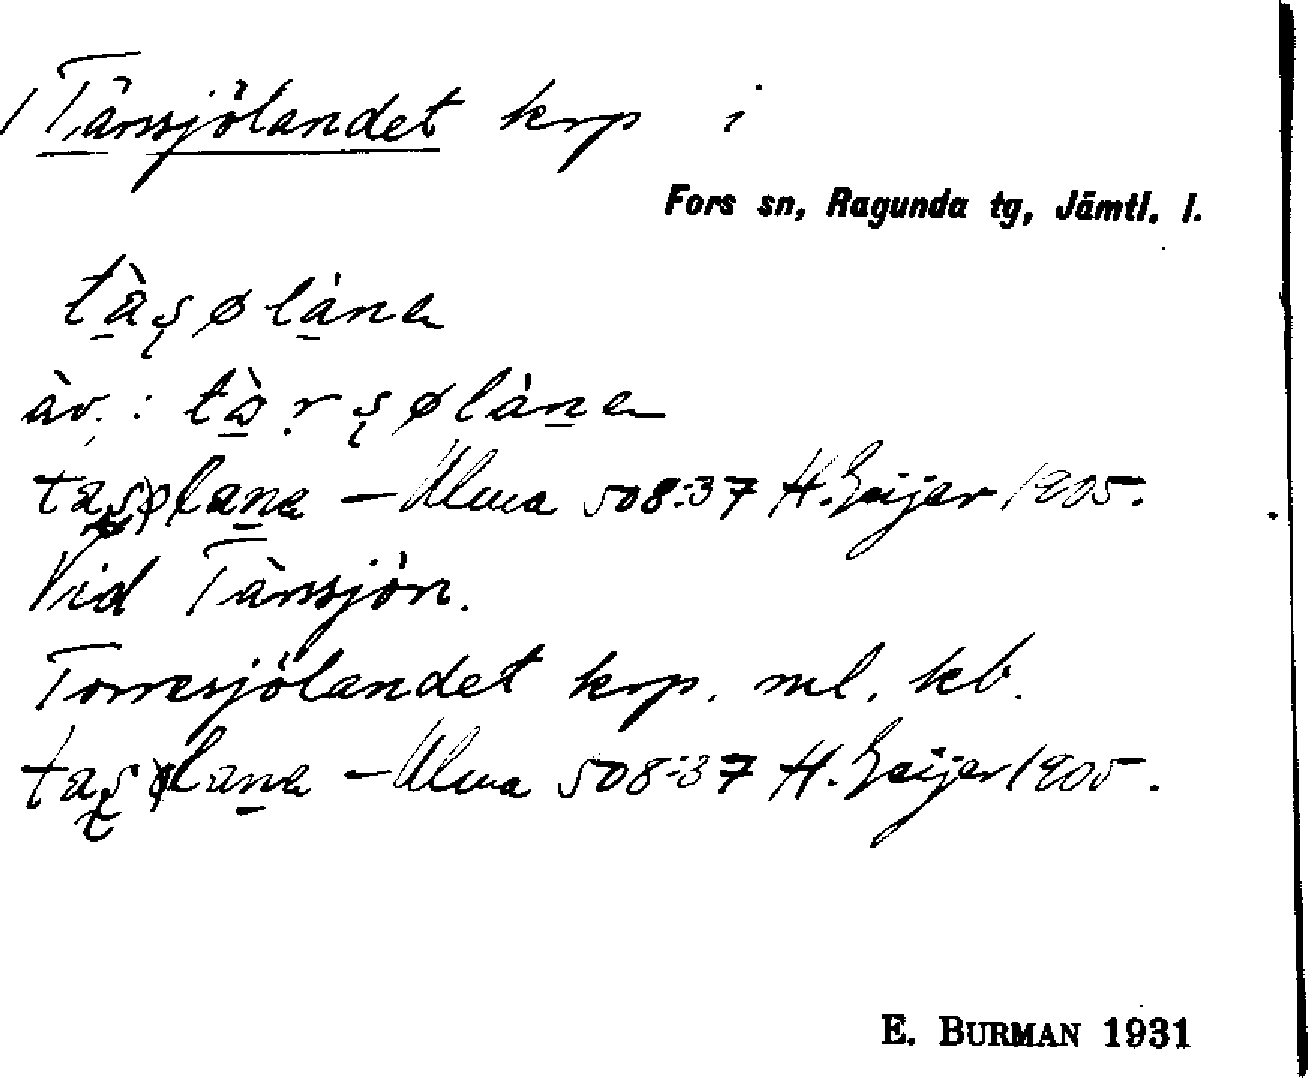 Tånsjölandet krp i
Fors sn, Ragunda tg, Jämtl. l.
tàʂølána
äv.: tɔ̀rʂølána
taʂølana – Ulma 508:37 H. Geijer 1905.
Vid Tånsjön.
Torresjölandet krp. ml. kb.
taʂølana – Ulma 508:37 H. Geijer 1905.
E. BURMAN 1931